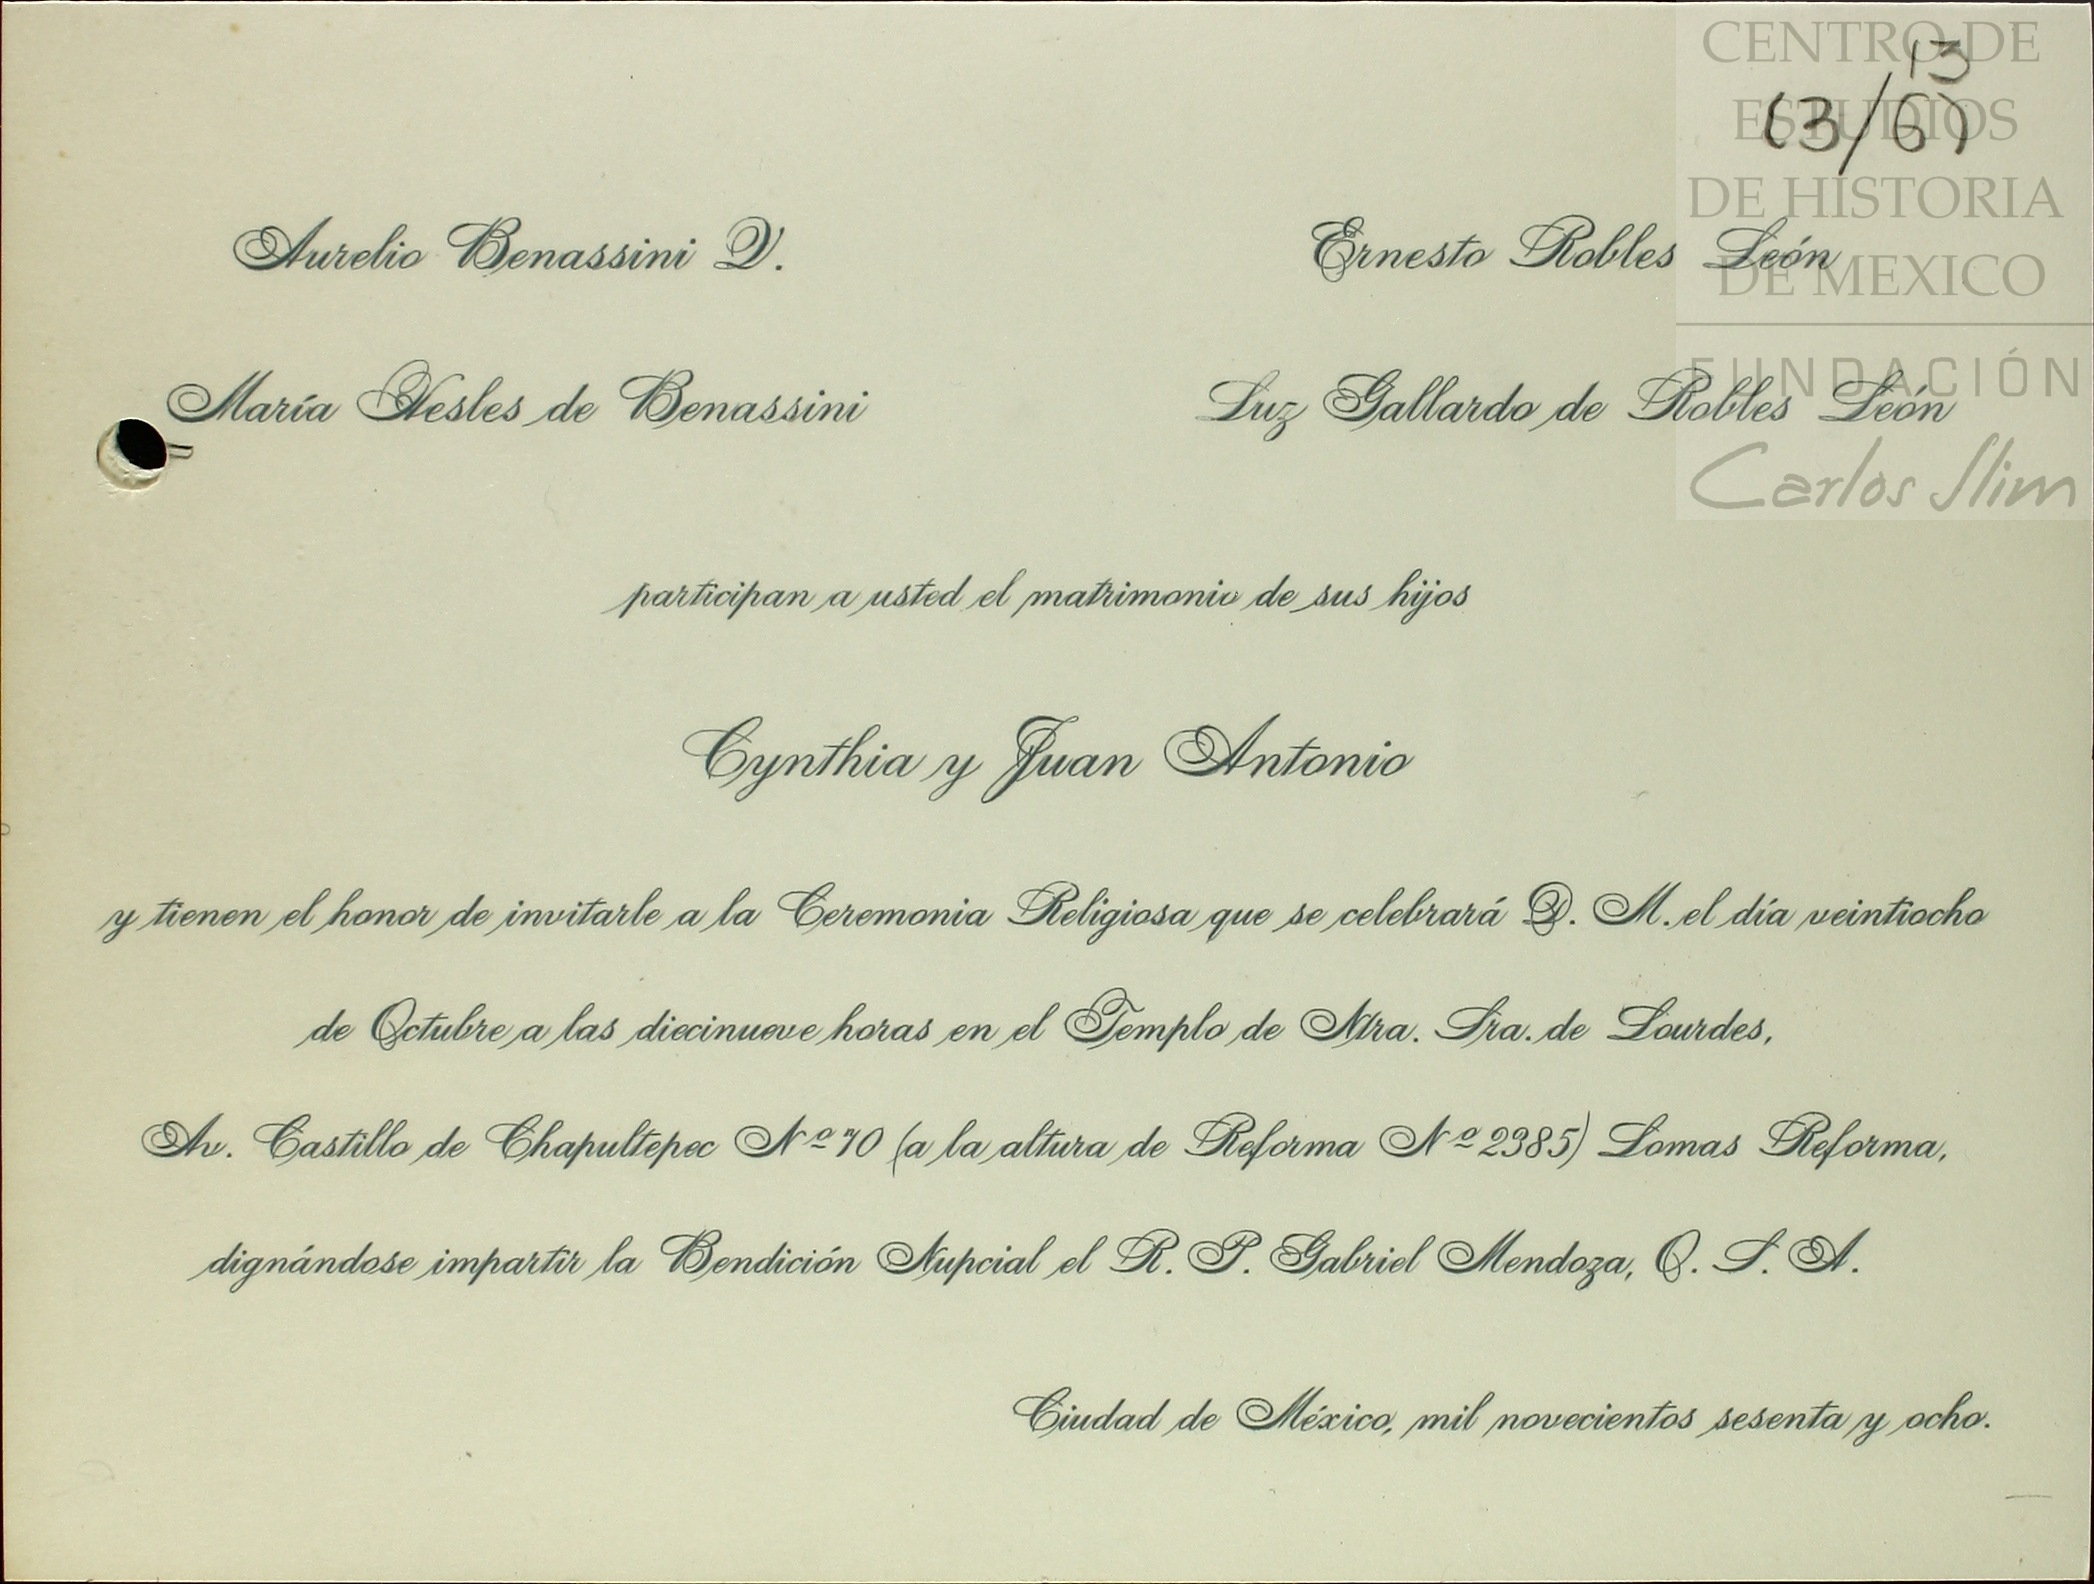 CENTRO DE
ESTUDIOS
DE HISTORIA
DE MEXICO
FUNDACIÓN
Carlos Slim
13
(3/6)
Aurelio Benassini V.
María Vesles de Benassini
Ernesto Robles León
Luz Gallardo de Robles León
participan a usted el matrimonio de sus hijos
Cynthia y Juan Antonio
y tienen el honor de invitarle a la Ceremonia Religiosa que se celebrará D. M. el día veintiocho
de Octubre a las diecinueve horas en el Templo de Ntra. Sra. de Lourdes,
Av. Castillo de Chapultepec Nº 70 (a la altura de Reforma Nº 2385) Lomas Reforma,
dignándose impartir la Bendición Nupcial el R. P. Gabriel Mendoza, O. S. A.
Ciudad de México, mil novecientos sesenta y ocho.